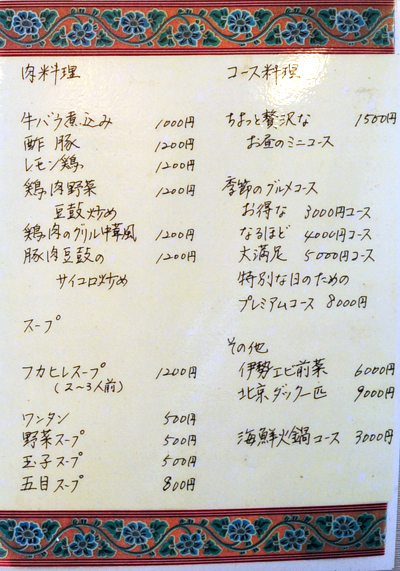 肉料理
牛バラ煮込み 1000円
酢豚 1200円
レモン鶏 1200円
鶏肉野菜 1200円
豆鼓炒め
鶏肉のグリル中華風 1200円
豚肉豆鼓の 1200円
サイコロ炒め
スープ
フカヒレスープ 1200円
(2〜3人前)
ワンタン 500円
野菜スープ 500円
玉子スープ 500円
五目スープ 800円
コース料理
ちょっと贅沢な 1500円
お昼のミニコース
季節のグルメコース
お得な 3000円コース
なるほど 4000円コース
大満足 5000円コース
特別な日のための
プレミアムコース 8000円
その他
伊勢エビ前菜 6000円
北京ダック一匹 9000円
海鮮火鍋コース 3000円